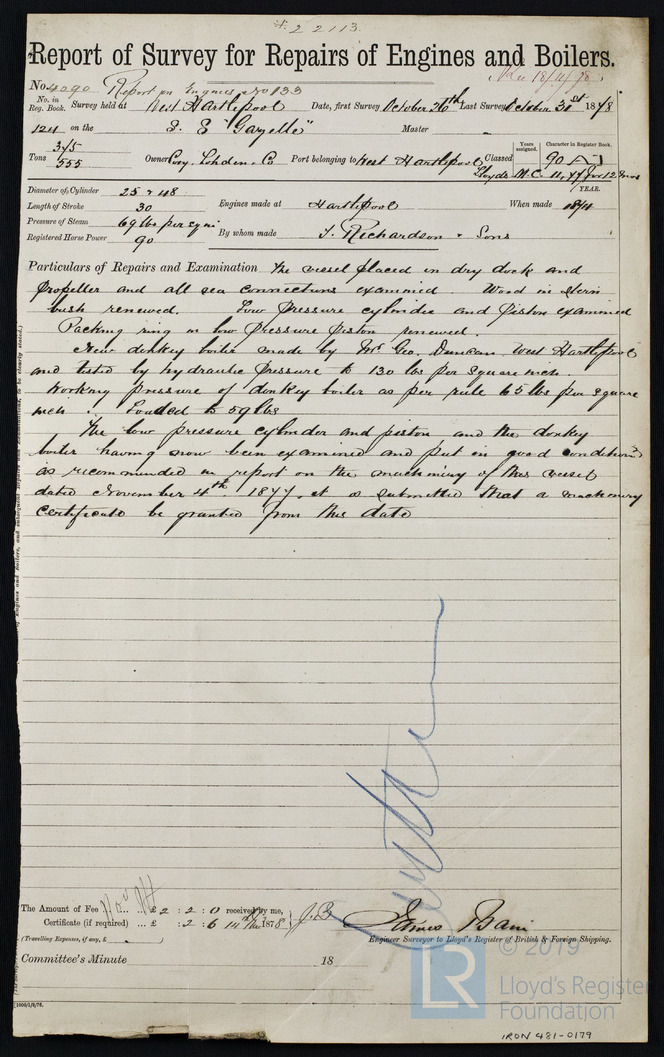 22113
Report of Survey for Repairs of Engines and Boilers.
18/11/78
No. 4090 Report on Engines No 133
No. in Reg. Book. Survey held at West Hartlepool Date, first Survey October 26th Last Survey October 31st 1878
124 on the "Gazelle" Master -
Years assigned. Character in Register Book.
Tons 345 / 555 Owner Coxy. Lohden & Co Port belonging to West Hartlepool Classed 90 A1
Lloyds M.C. 11,77 for 12 mos
YEAR.
Diameter of Cylinder 25 & 48
Length of Stroke 30 Engines made at Hartlepool When made
Pressure of Steam 69 lbs per
Registered Horse Power 90 By whom made T. Richardson & Sons
Particulars of Repairs and Examination The vessel placed in dry dock and
propeller and all sea connections examined. Wood in stern
bush renewed. Low pressure cylinder and piston examined
Packing ring in low pressure piston renewed.
New donkey boiler made by Mr Geo. Duncan West Hartlepool
and tested by hydraulic pressure to 130 lbs per square inch.
Working pressure of donkey boiler as per rule 65 lbs per square
inch. Loaded to 59 lbs
The low pressure cylinder and piston and the donkey
boiler having now been examined and put in good condition
as recommended in report on the machinery of this vessel
dated November 4th 1877, it is submitted that a machinery
certificate be granted from this date
The Amount of Fee ... ... £ 2 : 2 : 0 received by me,
Certificate (if required) ... £ : 2 : 6 1878 J.B
(Travelling Expenses, if any, £ )
James Bain
Engineer Surveyor to Lloyd's Register of British & Foreign Shipping.
Committee's Minute 18
© 2019
LR
Lloyd's Register
Foundation
IRON 481-0179